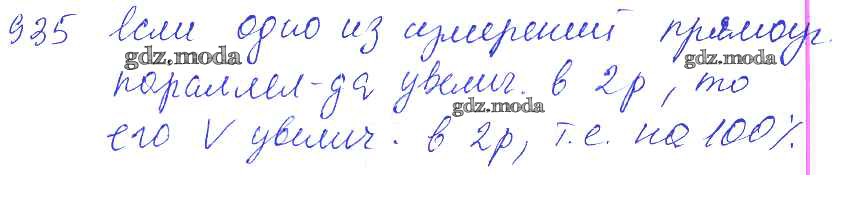 935 Если одно из измерений прямоуг.
gdz.moda
gdz.moda
паралел-да увелич. в 2р, то
gdz.moda
его V увелич. в 2р, т.е. на 100%